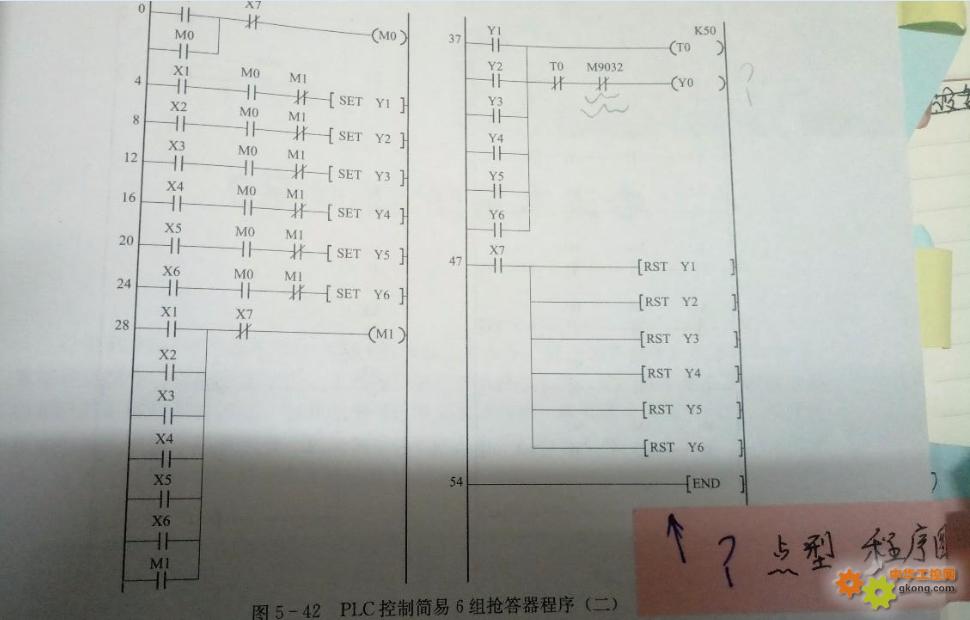 0 X7
(M0)
M0
4 X1 M0 M1 [SET Y1]
8 X2 M0 M1 [SET Y2]
12 X3 M0 M1 [SET Y3]
16 X4 M0 M1 [SET Y4]
20 X5 M0 M1 [SET Y5]
24 X6 M0 M1 [SET Y6]
28 X1 X7 (M1)
X2
X3
X4
X5
X6
M1
37 Y1 K50
(T0)
Y2 T0 M9032 (Y0) ?
Y3
Y4
Y5
Y6
47 X7 [RST Y1]
[RST Y2]
[RST Y3]
[RST Y4]
[RST Y5]
[RST Y6]
54 [END]
图5-42 PLC控制简易6组抢答器程序(二)
? 点型 程序图
中华工控网
gkong.com